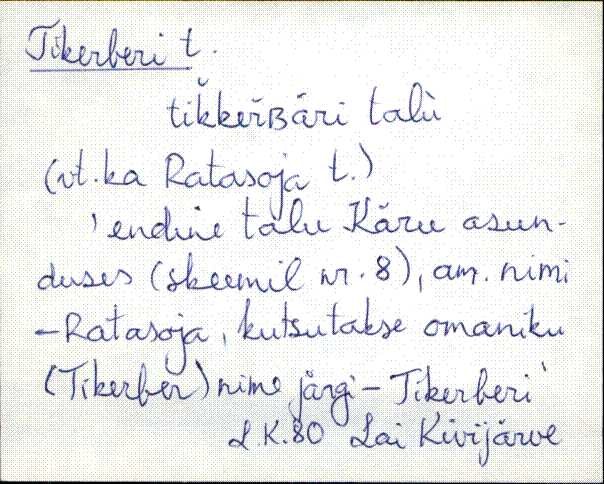 Tikerberi t.
tik̆kerʙäri talù
(vt. ka Ratasoja t.)
'endine talu Käru asun-
duses (skeemil nr. 8), am. nimi
- Ratasoja, kutsutakse omaniku
(Tikerber) nime järgi - Tikerberi'
L.K. 80 Lai Kivijärve